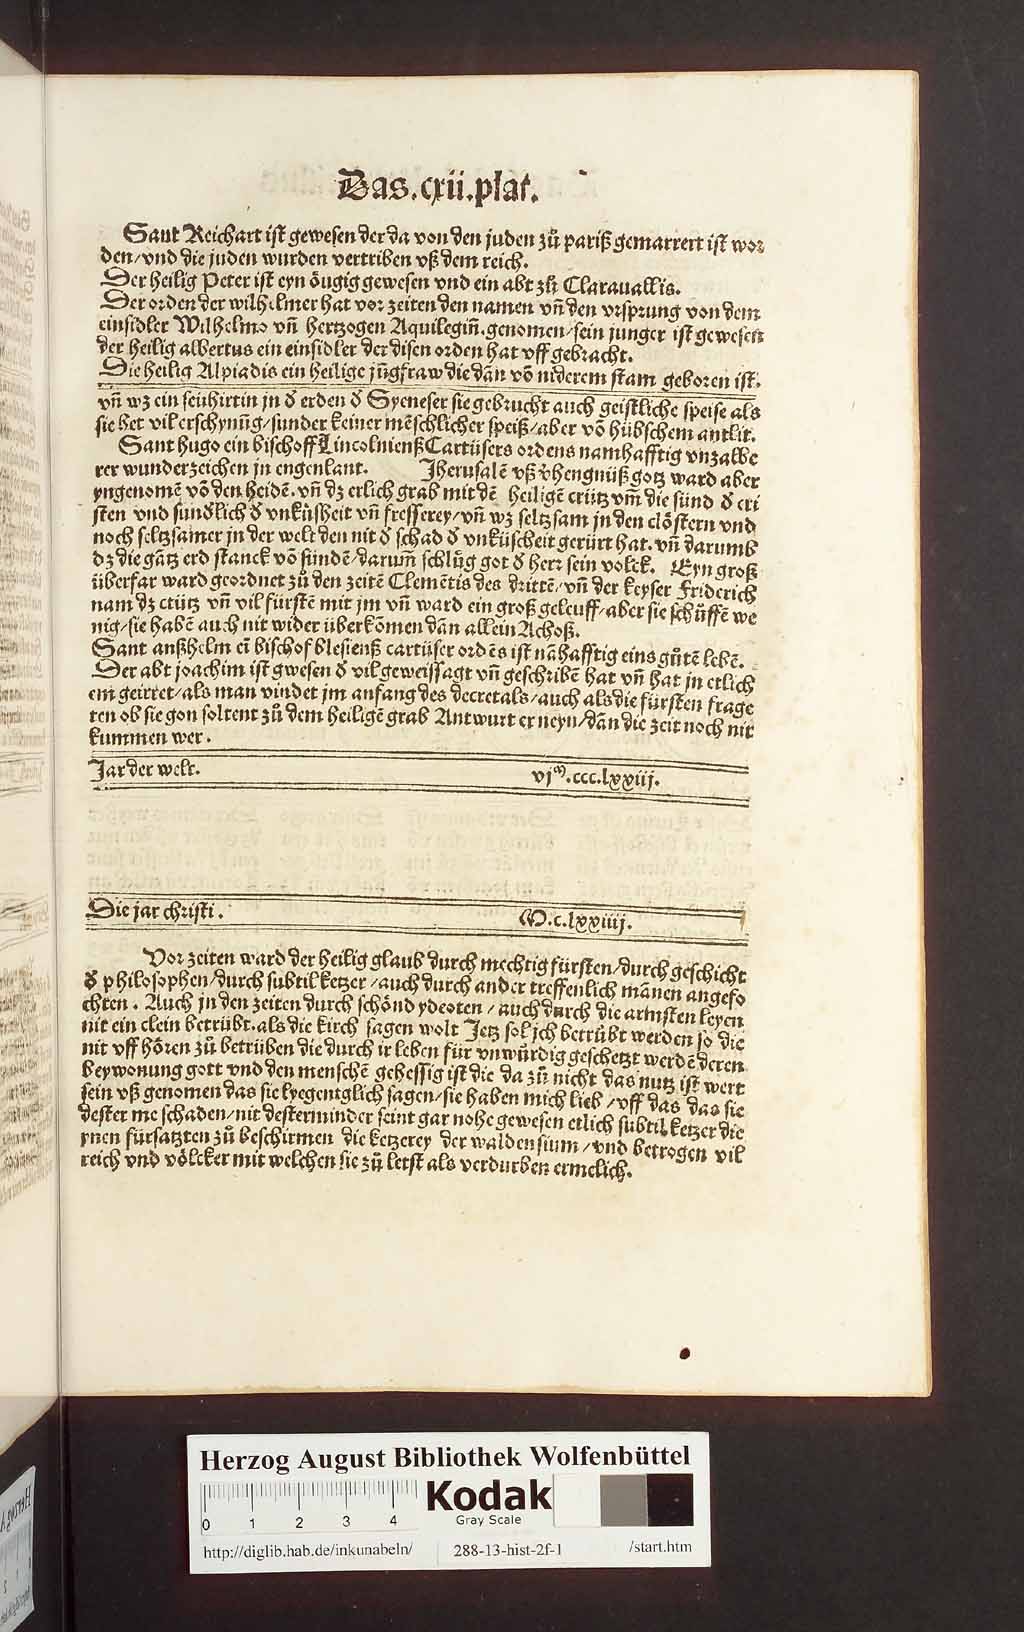 Das.cxii.plat.
Sant Reichart ist gewesen der da von den juden zů pariß gemarrert ist wor
den/vnd die juden wurden vertriben vß dem reich.
Der heilig Peter ist eyn öugig gewesen vnd ein abt zů Clarauallis.
Der orden der wilhelmer hat vor zeiten den namen vñ den vrsprung von dem
einsidler Wilhelmo vñ hertzogen Aquilegiñ.genomen/sein junger ist gewesen
der heilig albertus ein einsidler der disen orden hat vff gebracht.
Die heilig Alpiadis ein heilige jũgfraw die dan võ niderem stam geboren ist.
vñ wz ein seuhirtin jn d̓ erden d̓ Syeneser sie gebrucht auch geistliche speise als
sie het vil erschynũg/sunder keiner mẽschlicher speiß/aber võ hübschem antlit.
Sant hugo ein bischoff Lincolnienß Cartüsers ordens namhafftig vnzalbe
rer wunderzeichen jn engenlant. Jherusalẽ vß v̓hengnüß gotz ward aber
yngenomẽ võ den heidẽ. vñ dz erlich grab mit dẽ heiligẽ crütz vm̃ die sünd d̓ cri
sten vnd sundlich d̓ vnküsheit vñ fresserey/vñ wz seltzsam jn den clöstern vnd
noch seltzsamer jn der welt den nit d̓ schad d̓ vnküscheit gerürt hat. vñ darumb
dz die gãtz erd stanck võ sündẽ/darum̃ schlůg got d̓ herr sein volck. Eyn groß
überfar ward geordnet zů den zeitẽ Clemẽtis des drittẽ/vñ der keyser Friderich
nam dz ctütz vñ vil fürstẽ mit jm vñ ward ein groß geleuff/aber sie schüffẽ we
nig/sie habẽ auch nit wider überkõmen dãn allein Achoß.
Sant anßhelm eĩ bischof blesienß cartüser ordẽs ist nãhafftig eins gůtẽ lebẽ.
Der abt joachim ist gwesen d̓ vil geweissagt vñ geschribẽ hat vñ hat jn etlich
em geirret/als man vindet jm anfang des decretals/auch als die fürsten frage
ten ob sie gon soltent zů dem heiligẽ grab Antwurt er neyn/dãn die zeit noch nit
kummen wer.
Jar der welt. vjᵐ.ccc.lxxiij.
Die jar christi. M.c.lxxiiij.
Vor zeiten ward der heilig glaub durch mechtig fürsten/durch geschicht
d̓ philosophen/durch subtil ketzer/auch durch ander treffenlich mãnen angefo
chten. Auch jn den zeiten durch schönd ydeoten/auch durch die armsten leyen
nit ein clein betrübt.als die kirch sagen wolt Jetz sol jch betrübt werden so die
nit vff hören zů betrüben die durch ir leben für vnwürdig geschetzt werdẽ deren
beywonung gott vnd den menschẽ gehessig ist die da zů nicht das nutz ist wert
sein vß genomen das sie lyegentglich sagen/sie haben mich lieb/vff das das sie
dester me schaden/nit desterminder seint gar nohe gewesen etlich subtil ketzer die
ynen fürsatzten zů beschirmen die ketzerey der waldensium/vnd betrogen vil
reich vnd völcker mit welchen sie zů letst als verdurben ermelich.
Herzog August Bibliothek Wolfenbüttel
0 1 2 3 4
Kodak
Gray Scale
http://diglib.hab.de/inkunabeln/ 288-13-hist-2f-1 /start.htm